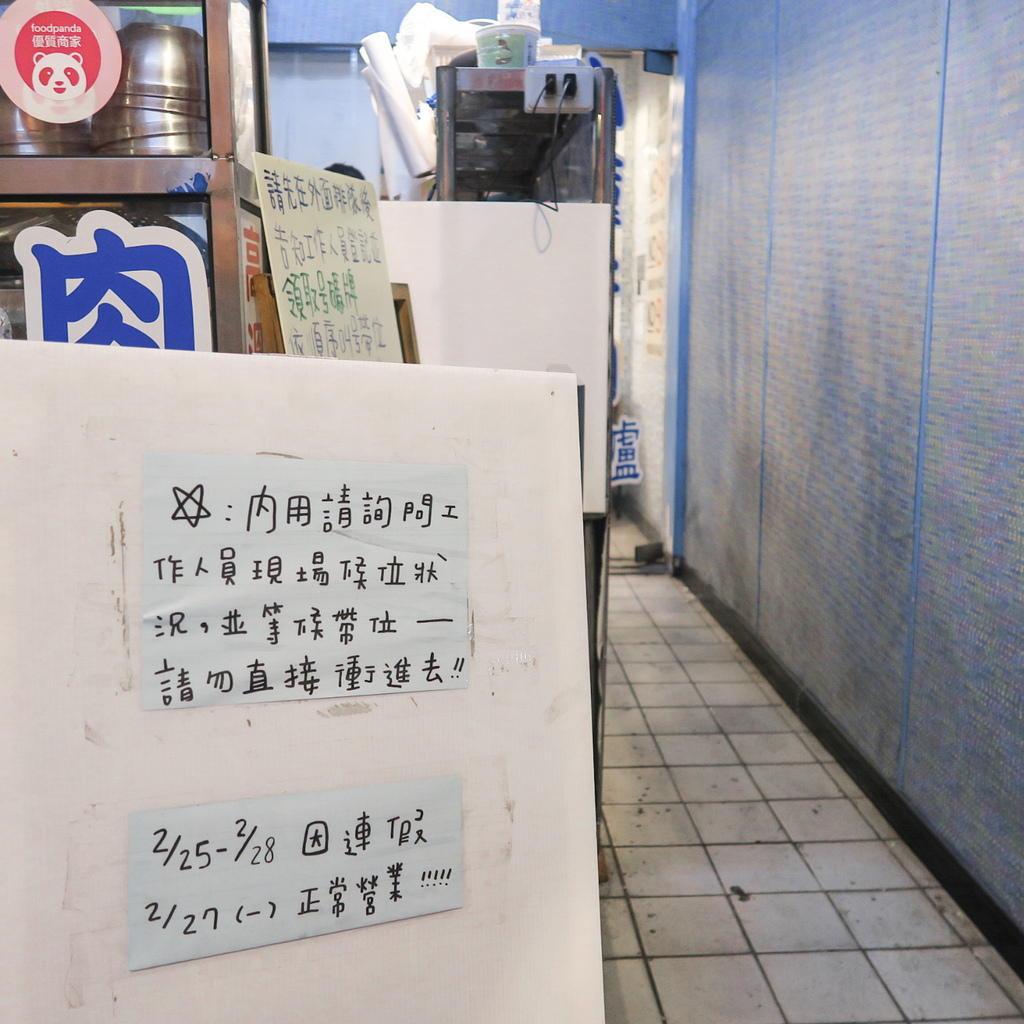 foodpanda
優質商家
肉
高溫
請先在外面排隊後
告知工作人員登記並
領取号碼牌
依順序叫号帶位
盧
☆:內用請詢問工
作人員現場候位狀
況,並等候帶位—
請勿直接衝進去!!
2/25-2/28 因連假
2/27(一) 正常營業!!!!!